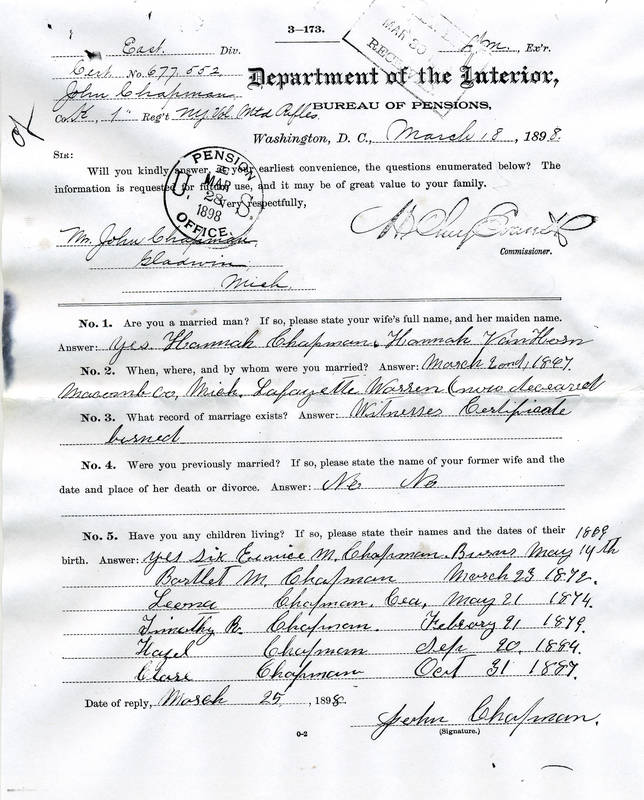 3—173.
East. Div.
Ex'r.
MAR 30
RECEIVED
Cert. No. 677,552
John Chapman
Co. K, 1" Reg't NY Vol. Mtd Rifles.
Department of the Interior,
BUREAU OF PENSIONS,
Washington, D. C., March 18, 1898.
SIR:
Will you kindly answer, at your earliest convenience, the questions enumerated below? The
information is requested for future use, and it may be of great value to your family.
Very respectfully,
U. S. PENSION OFFICE. MAR 28 1898
H. Clay Evans
Commissioner.
Mr. John Chapman
Gladwin
Mich
No. 1. Are you a married man? If so, please state your wife's full name, and her maiden name.
Answer: Yes. Hannah Chapman. Hannah VanHorn
No. 2. When, where, and by whom were you married? Answer: March 2ond, 1867.
Macomb Co, Mich. Lafayette Warren (now deceased
No. 3. What record of marriage exists? Answer: Witnesses Certificate
burned
No. 4. Were you previously married? If so, please state the name of your former wife and the
date and place of her death or divorce. Answer: No No
No. 5. Have you any children living? If so, please state their names and the dates of their 1869
birth. Answer: Yes six Eunice M. Chapman. Burns May 14th
Bartlet M. Chapman March 23 1872.
Leona Chapman. Cea, May 21 1874.
Timothy R. Chapman. Februry 21 1879.
Hazel Chapman Sep 20. 1884.
Clare Chapman Oct 31 1887.
Date of reply, March 25, 1898.
John Chapman.
(Signature.)
0-2